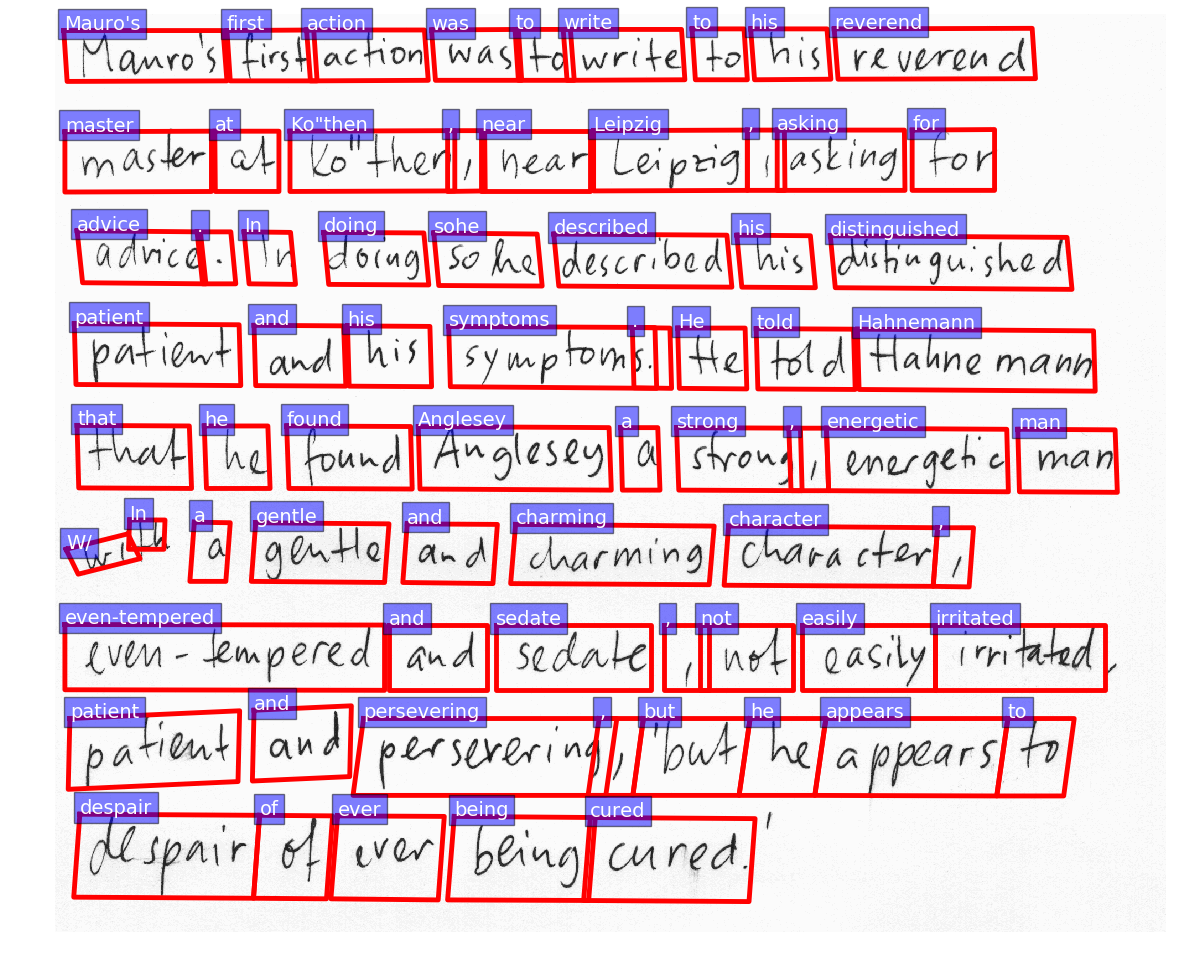 Mauro's first action was to write to his reverend
Mauro's first action was to write to his reverend
master at Ko"then , near Leipzig , asking for
master at Ko"then, near Leipzig, asking for
advice . In doing sohe described his distinguished
advice. In doing so he described his distinguished
patient and his symptoms . He told Hahnemann
patient and his symptoms. He told Hahnemann
that he found Anglesey a strong , energetic man
that he found Anglesey a strong, energetic man
W/ In a gentle and charming character ,
with a gentle and charming character,
even-tempered and sedate , not easily irritated
even-tempered and sedate, not easily irritated,
patient and persevering , but he appears to
patient and persevering, 'but he appears to
despair of ever being cured
despair of ever being cured.'